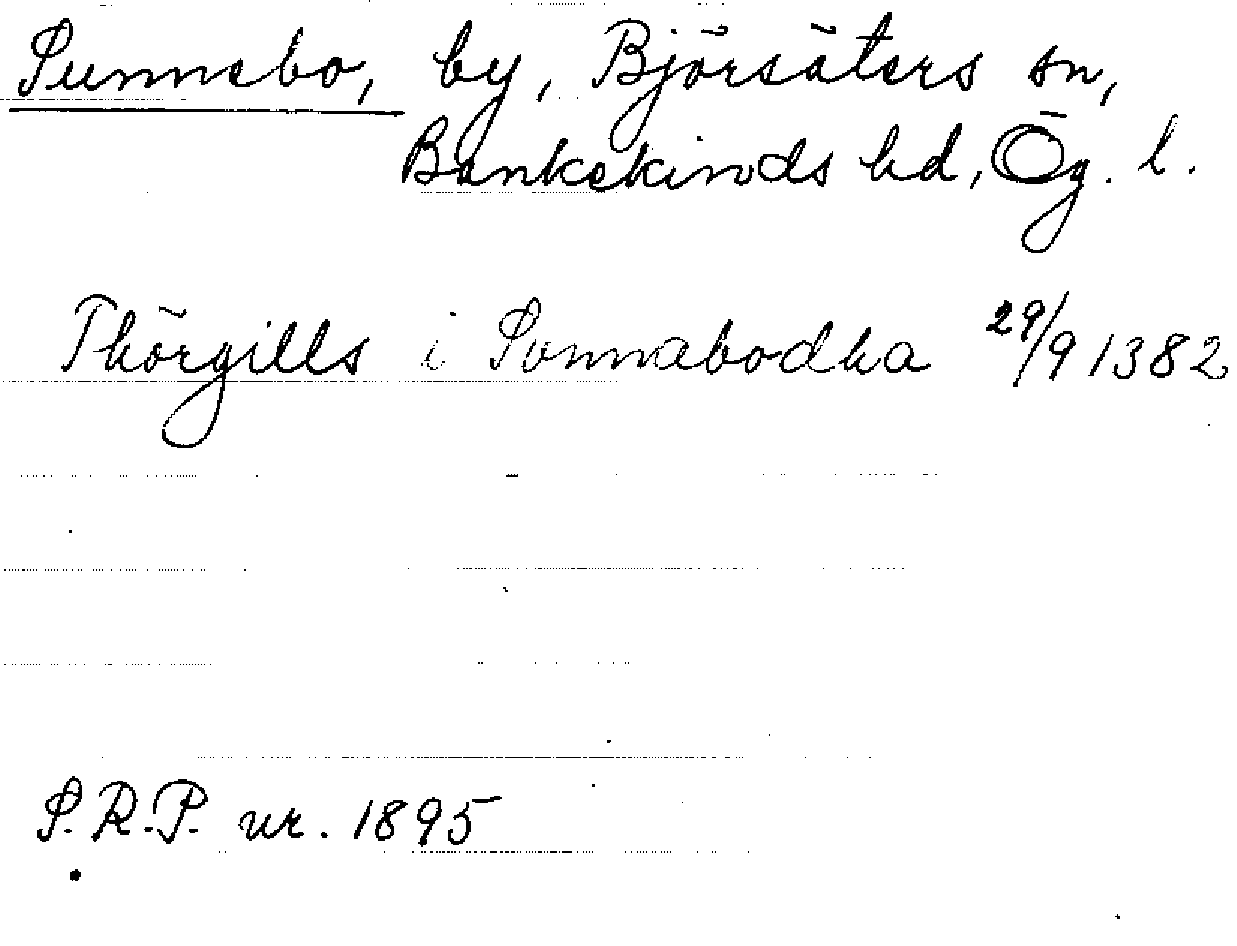 Sunnebo, by, Björsäters sn,
Bankekinds hd, Ög. l.
Thörgills i Sonnabodha 29/9 1382
S.R.P. nr. 1895